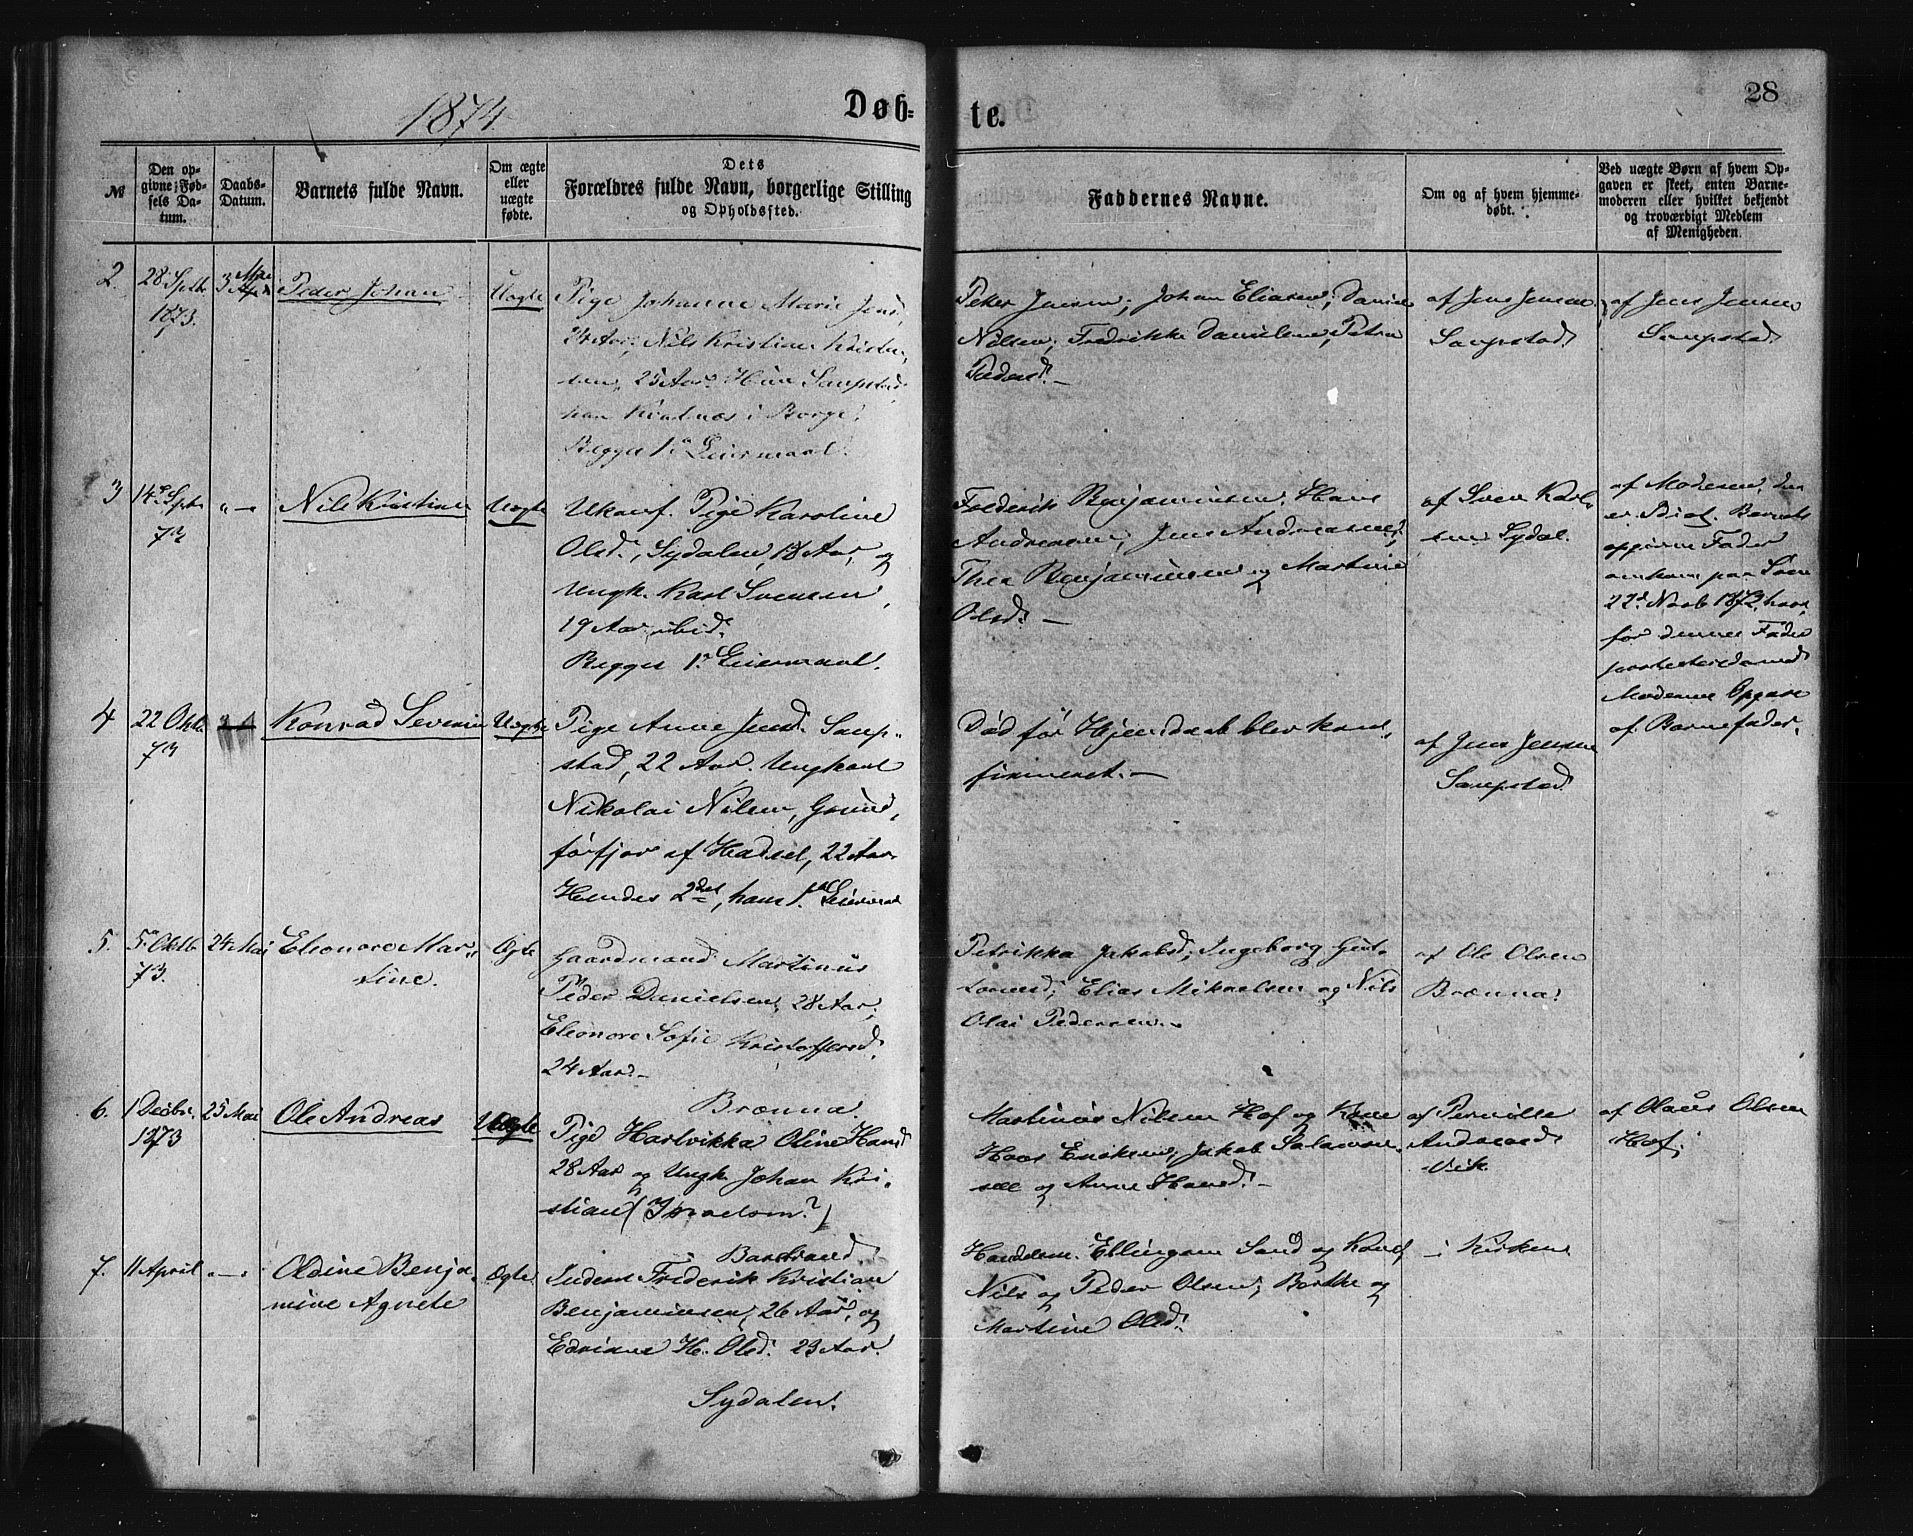 1874.
Døb-
te.
28
№
Den opgivne Fødsels Datum.
Daabs-Datum.
Barnets fulde Navn.
Om ægte eller uægte fødte.
Dets Forældres fulde Navn, borgerlige Stilling og Opholdssted.
Faddernes Navne.
Om og af hvem hjemmedøbt.
Ved uægte Børn af hvem Opgaven er skeet, enten Barnemoderen eller hvilket bekjendt og troværdigt Medlem af Menigheden.
2.
28 Septb.
1873.
3 Mai
Peder Johan
Uægte
Pige Johanne Marie Jensd.
24 Aar, Nils Kristian Kristen-
sen, 25 Aar. Hun Saupstad
han Kvalnæs i Borge.
Begges 1ste Leiermaal.
Peter Jensen; Johan Eliasen; Daniel
Nilsen; Fredrikke Danielsen, Petra
Pedersd. –
af Jens Jensen
Saupstad
af Jens Jensen
Saupstad
3
14de Septb
73
" — "
Nils Kristian
Uægte
Ukonf. Pige Karoline
Olsd., Sydalen, 18 Aar, og
Ungk. Karl Svensen,
19 Aar, ibid.
Begges 1ste Leiermaal.
Frederik Benjaminsen, Hans
Andreasen, Jens Andreasen,
Thea Benjaminsen og Martine
Olsd. –
af Sven Karl-
sen Sydal.
af Moderen,
er Idiot. Barnets
opgivne Fader
omkom paa Søen
22de Novb 1872, hvor-
for dennes Fader
protesterede mod
Moderens Opgave
af Barnefader.
4
22 Oktb
73
Konrad Severin
Uægte
Pige Anne Jensd. Saup-
stad, 22 Aar. Ungkarl
Nikolai Nilsen, Grund-
førfjor af Hadsel, 22 Aar
Hendes 2det, hans 1ste Leiermaal
Død før Hjemdaab blev kon-
firmeret. –
af Jens Jensen
Saupstad
5.
5 Oktb
73.
24 Mai
Eleonore Mar-
tine.
Ægte
Gaardmand Martinus
Peder Danielsen, 28 Aar,
Eleonore Sofie Kristoffersd.
24 Aar. –
Brænna.
Petrikka Jakobsd, Ingeborg Gut-
tormsd; Elias Mikaelsen og Nils
Olai Pedersen. –
af Ole Olsen
Brænna.
6.
1 Decbr.
1873
25 Mai
Ole Andreas
Uægte
Pige Hartvikka Oline Hansd
28 Aar og Ungk. Johan Kri-
stian (Israelsen?)
Martinus Nilsen Hof og Kone
Hans Eriksen, Jakob Salamon-
sen og Anne Hansd. –
af Pernille
Andreasd
Vik
af Olaus Olsen
Hof.
7.
11 April
" — "
Oldine Benja-
mine Agnete
Ægte
Barstrand.
Inderst Frederik Kristian
Benjaminsen, 26 Aar, og
Edriane H. Olsd. 23 Aar.
Sydalen.
Handelsm. Ellingsen Sand og Kone,
Nils og Peder Olsen, Berthe og
Martine Olsd.
i Kirken